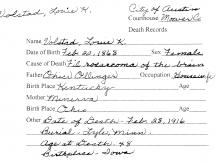 Volstad, Louise K.
City of Austin
Courthouse Mower Co
Death Records
Name Volstad, Louise K.
Date of Birth Feb 22, 1868 Sex Female
Cause of Death Fibrosarcoma of the brain
Father Chris Ollinger Occupation Housewife
Birth Place Kentucky
Mother Minerva
Birth Place Ohio
Other Date of Death - Feb 28, 1916
Burial - Lyle, Minn.
Age at Death - 48
Birthplace - Iowa